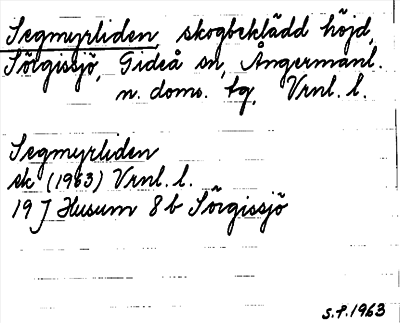 Segmyrliden, skogbeklädd höjd,
Sörgissjö, Gideå sn, Ångermanl.
n. doms. tg, Vrnl. l.
Segmyrliden
sk (1963) Vrnl. l.
19 J Husum 8 b Sörgissjö
S.P. 1963